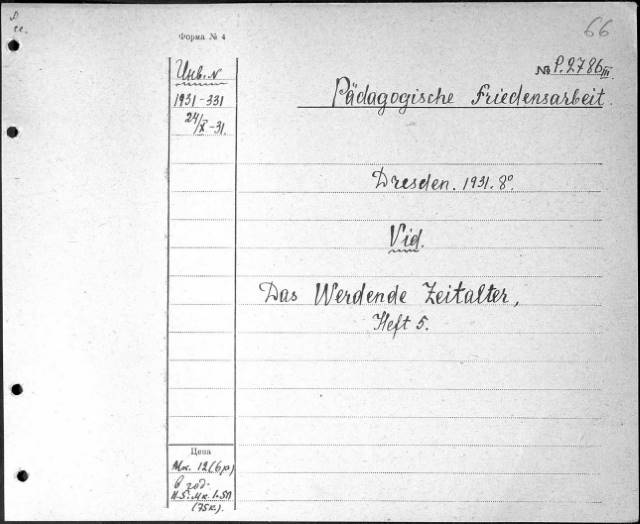 66
Форма № 4
Инв. N
1931-331
24/X-31.
№ P.2786 III
Pädagogische Friedensarbeit.
Dresden. 1931. 8°.
Vid.
Das Werdende Zeitalter,
Heft 5.
Цена
Мк. 12 (6 р)
в год.
(75к.)